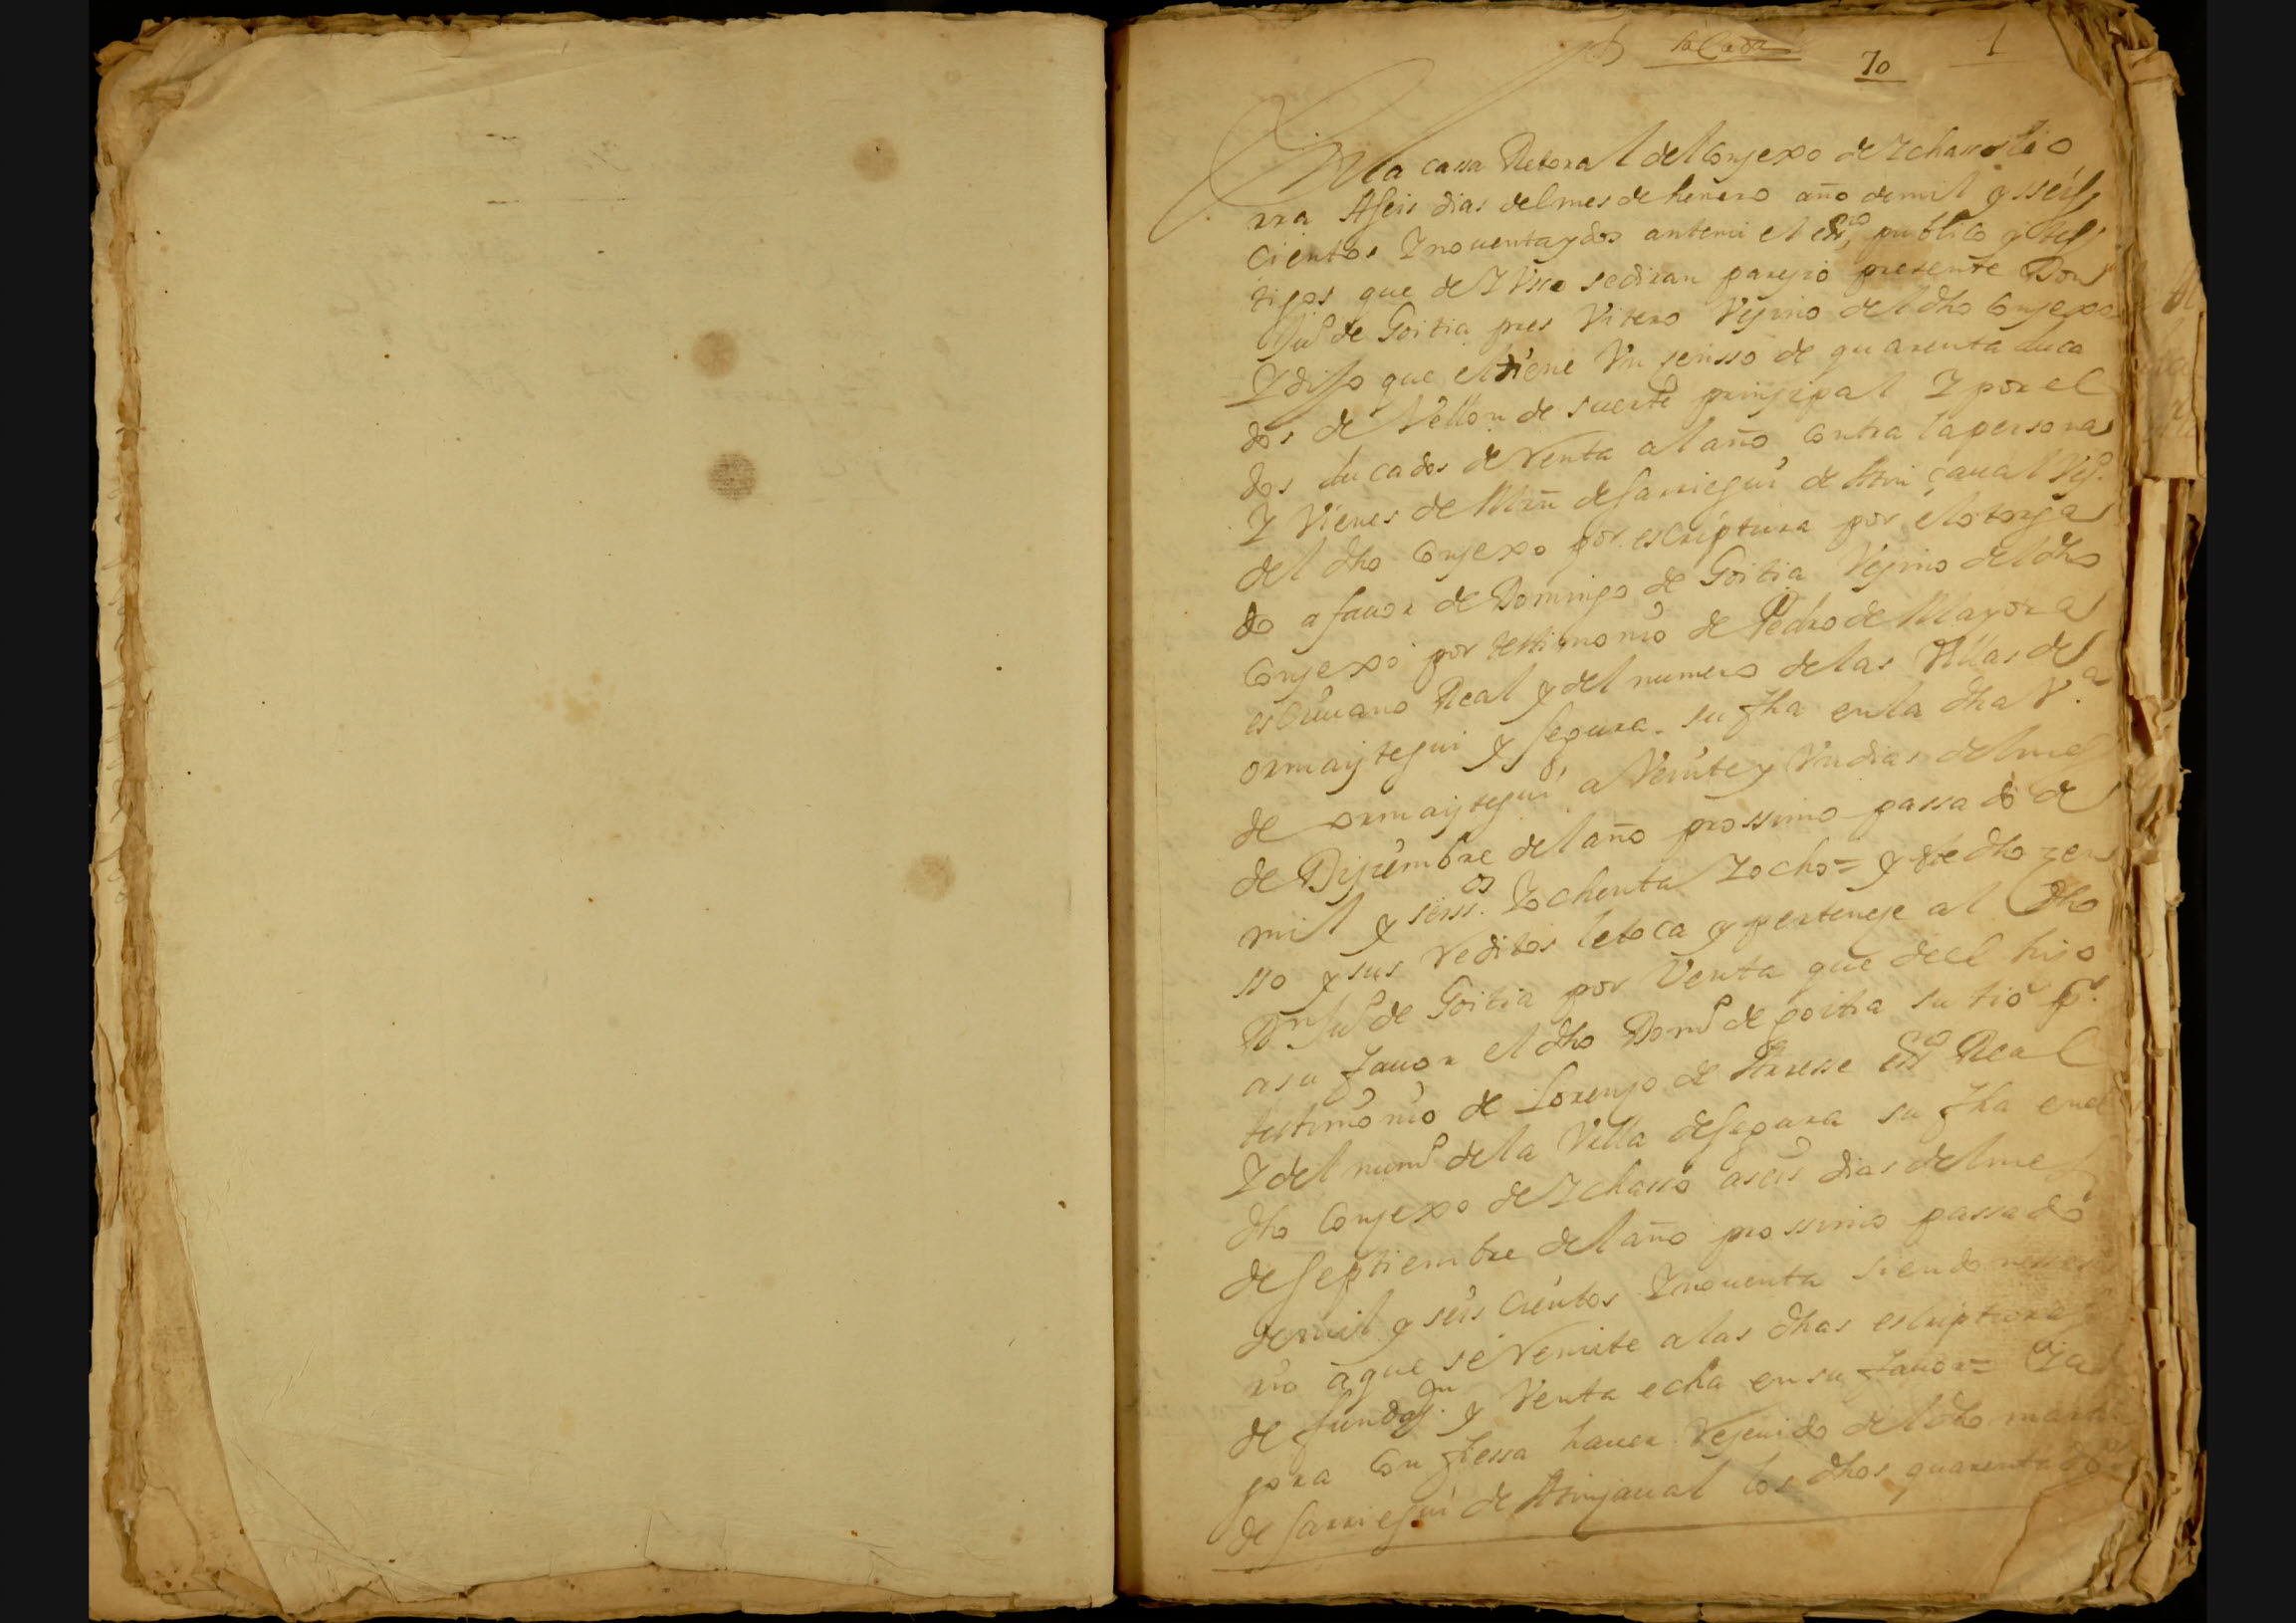 sacada
70 1
En la cassa Retoral del Conçexo de Ychasso
rra A seis dias del mes de henero año de mil y seis
cientos y nouenta y dos ante mi el essno publico y tes
tigos que de Yusso se diran pareçio presente Don
Juo de Goitia pres Vitero Veçino del dho Conçexo
Y dijo que el tiene Vn çensso de quarenta duca
dos de Vellon de suerte prinçipal Y por el
dos ducados de Renta al año Contra la persona
Y Vienes de Mrn de Sarriegui de Arinçaual Vejo
del dho Conçexo por escriptura por el otorga
do a fauor de Domingo de Goitia Veçino del dho
Conçexo por testimonio de Pedro de Mayora
escriuano Real y del numero de las Villas de
ormaiztegui y Segura su fha en la dha Va
de ormaiztegui a Veinte y Vn dias del mes
de Diçiembre del año prossimo passado de
mil y seissos Y ochenta Y ocho = y este dho çen
sso y sus reditos le toca y perteneçe al dho
Dn Juo de Goitia por Venta que de el hiço
a su fauor el dho Domo de goitia su tio pr
testimonio de Lorenço de Arresse essno Real
Y del numo de la Villa de Segura su fha en el
dho Conçexo de Ychasso a seis dias del mes
de Septiembre del año prossimo passado
de mil y seis cientos Y nouenta siendo neçessa
rio a que se remite a las dhas escripturas
de fundaçn y Venta echa en su fauor = Y a
gora Confiessa hauer Reçeuido del dho martin
de Sarriegui de Arinçaual los dhos quarenta dos